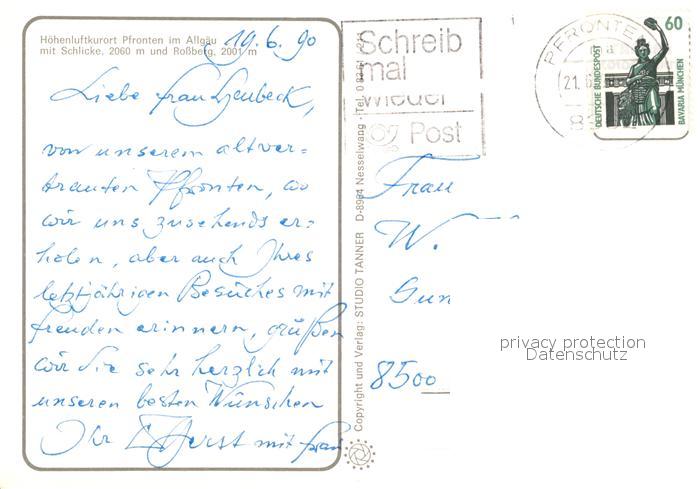 Höhenluftkurort Pfronten im Allgäu
mit Schlicke, 2060 m und Roßberg, 2001 m
19.6.90
Liebe Frau
von unserem altver=
trauten Pfronten, wo
wir uns zusehends er=
holen, aber auch Ihres
letztjährigen Besuches mit
Freuden erinnern, grüßen
wir Sie sehr herzlich mit
unseren besten Wünschen
Ihr Horst mit Frau
Copyright und Verlag: STUDIO TANNER D-8964 Nesselwang · Tel.
Schreib
mal
wieder
Post
PFRONTEN
21.
60
DEUTSCHE BUNDESPOST
BAVARIA MÜNCHEN
Frau
W.
Gun
8500
privacy protection
Datenschutz